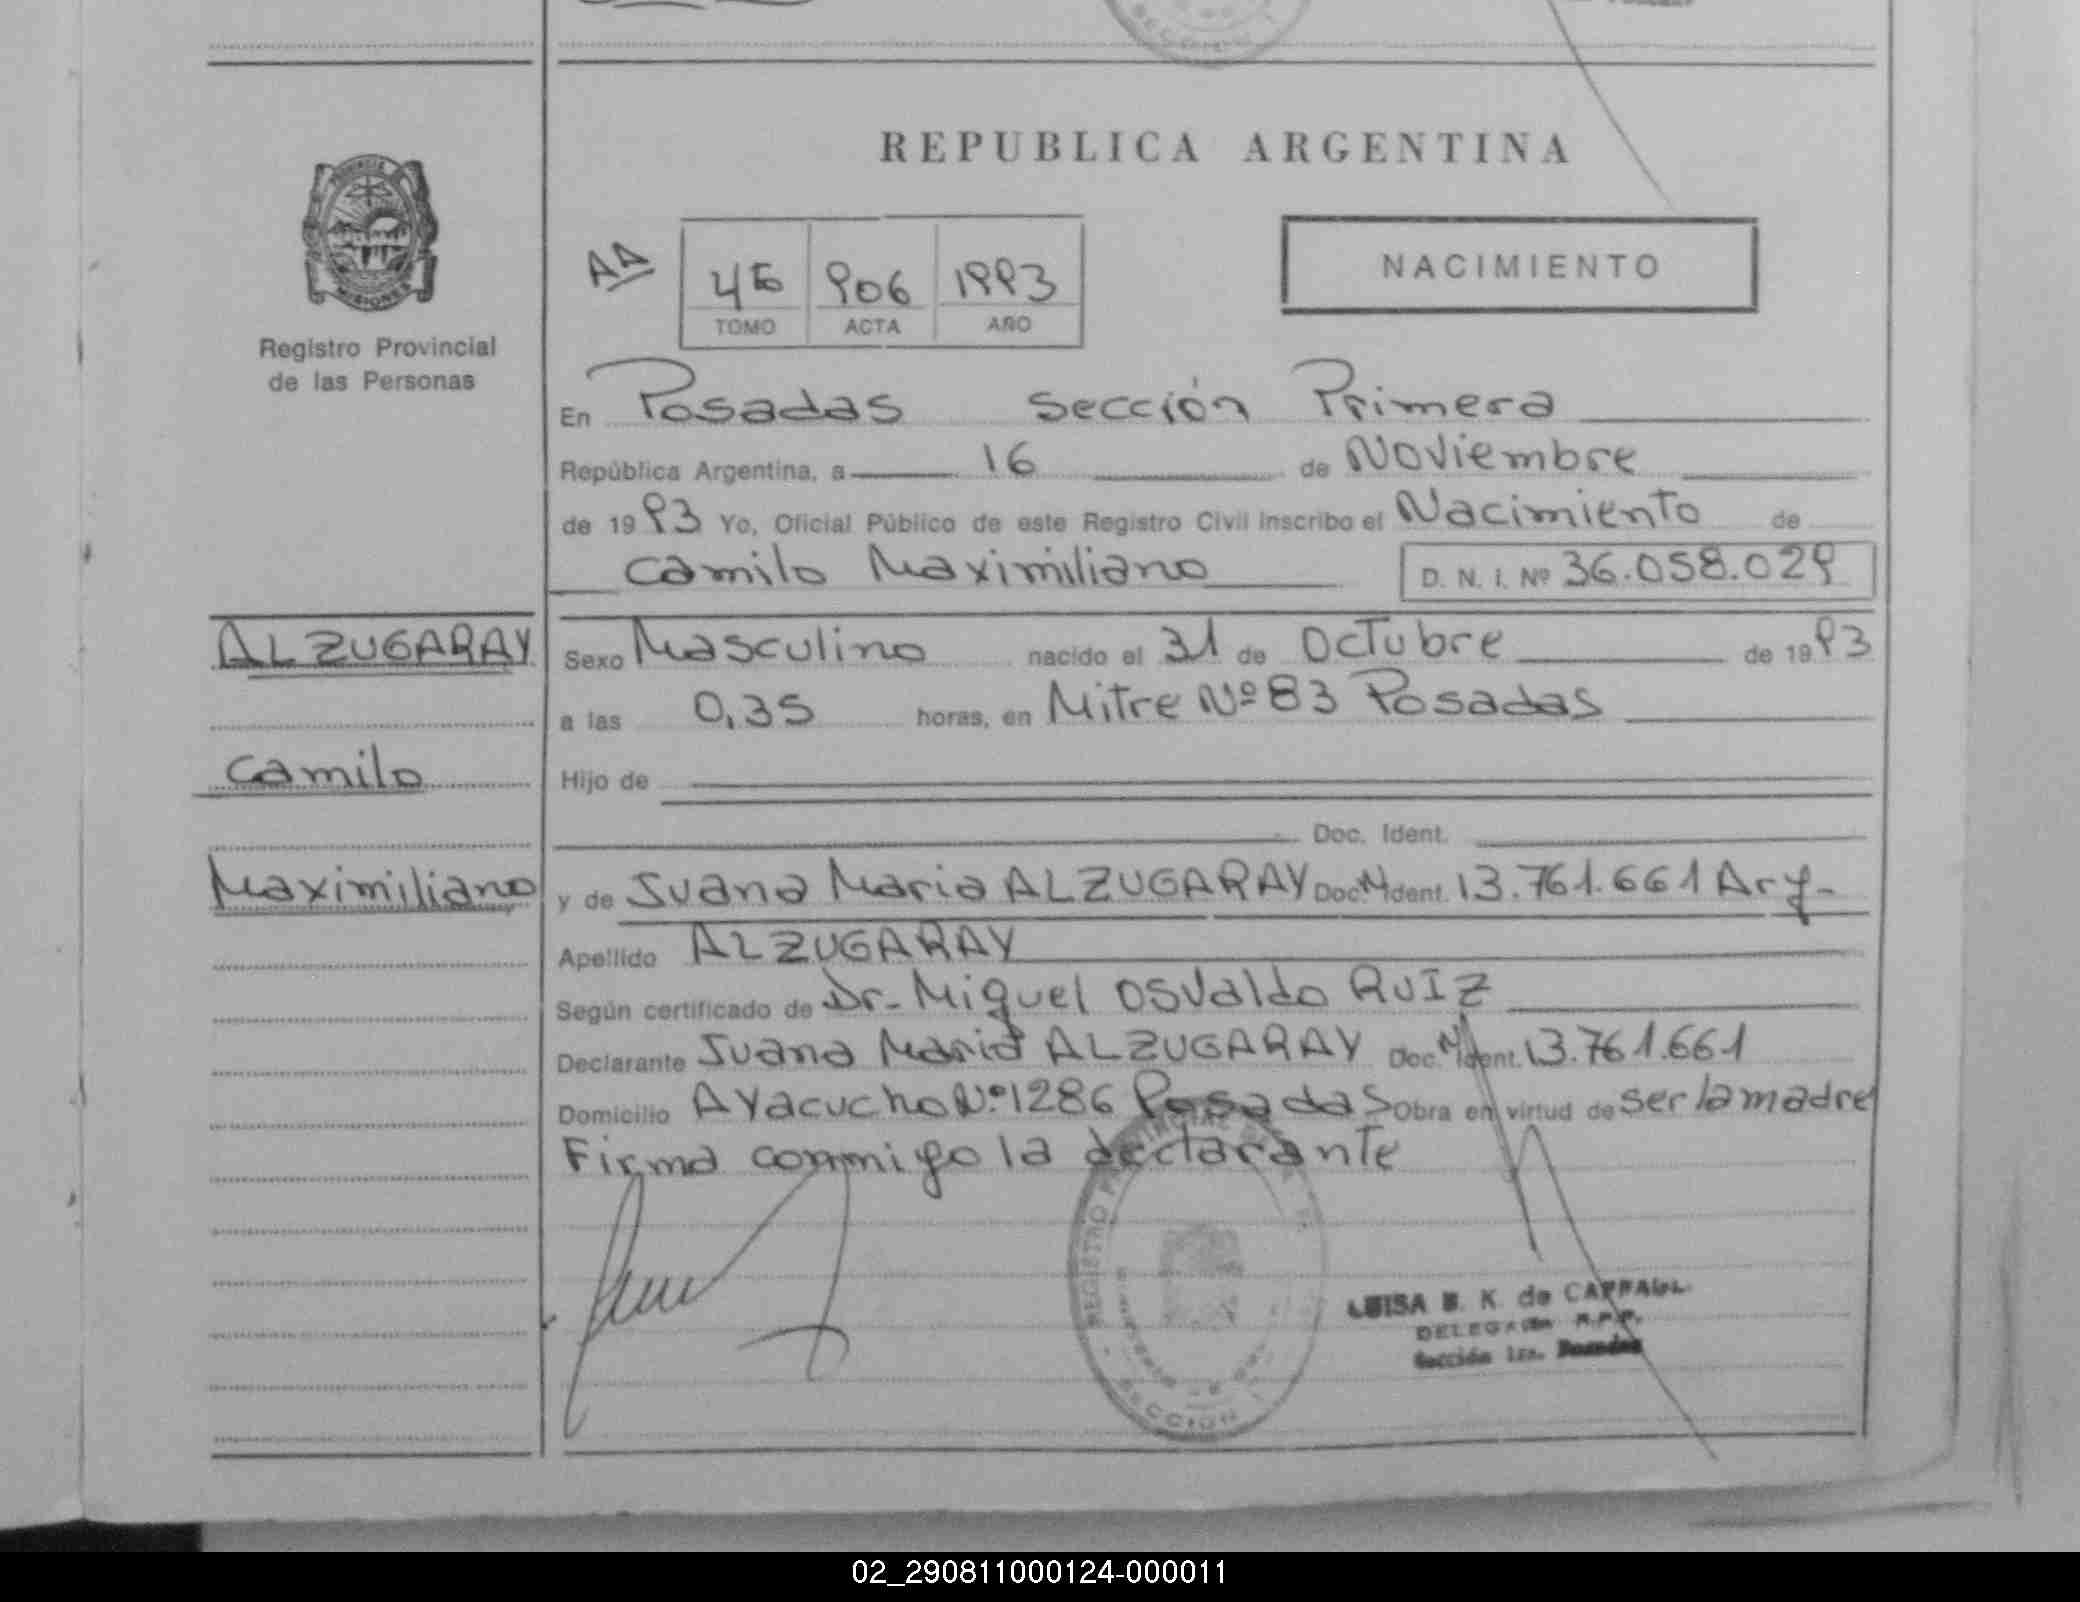 REPUBLICA ARGENTINA
PROVINCIA
MISIONES
Registro Provincial
de las Personas
AA
4E 906 1993
TOMO ACTA AÑO
NACIMIENTO
En Posadas Sección Primera
República Argentina, a 16 de Noviembre
de 1993 Yo, Oficial Público de este Registro Civil inscribo el Nacimiento de
Camilo Maximiliano D. N. I. Nº 36.058.029
ALZUGARAY
Sexo Masculino nacido el 31 de Octubre de 1993
a las 0,35 horas, en Mitre Nº 83 Posadas
Camilo
Hijo de
Doc. Ident.
Maximiliano
y de Juana Maria ALZUGARAY Doc. N Ident. 13.761.661 Arg-
Apellido ALZUGARAY
Según certificado de Dr- Miguel Osvaldo RUIZ
Declarante Juana Maria ALZUGARAY Doc. N Ident. 13.761.661
Domicilio Ayacucho Nº 1286 Posadas Obra en virtud de ser la madre
Firma conmigo la declarante
REGISTRO PROVINCIAL DE LAS
SECCION 1
LUISA B. K. de
DELEGADA R.P.P.
Sección 1ra. Posadas
02_290811000124-000011